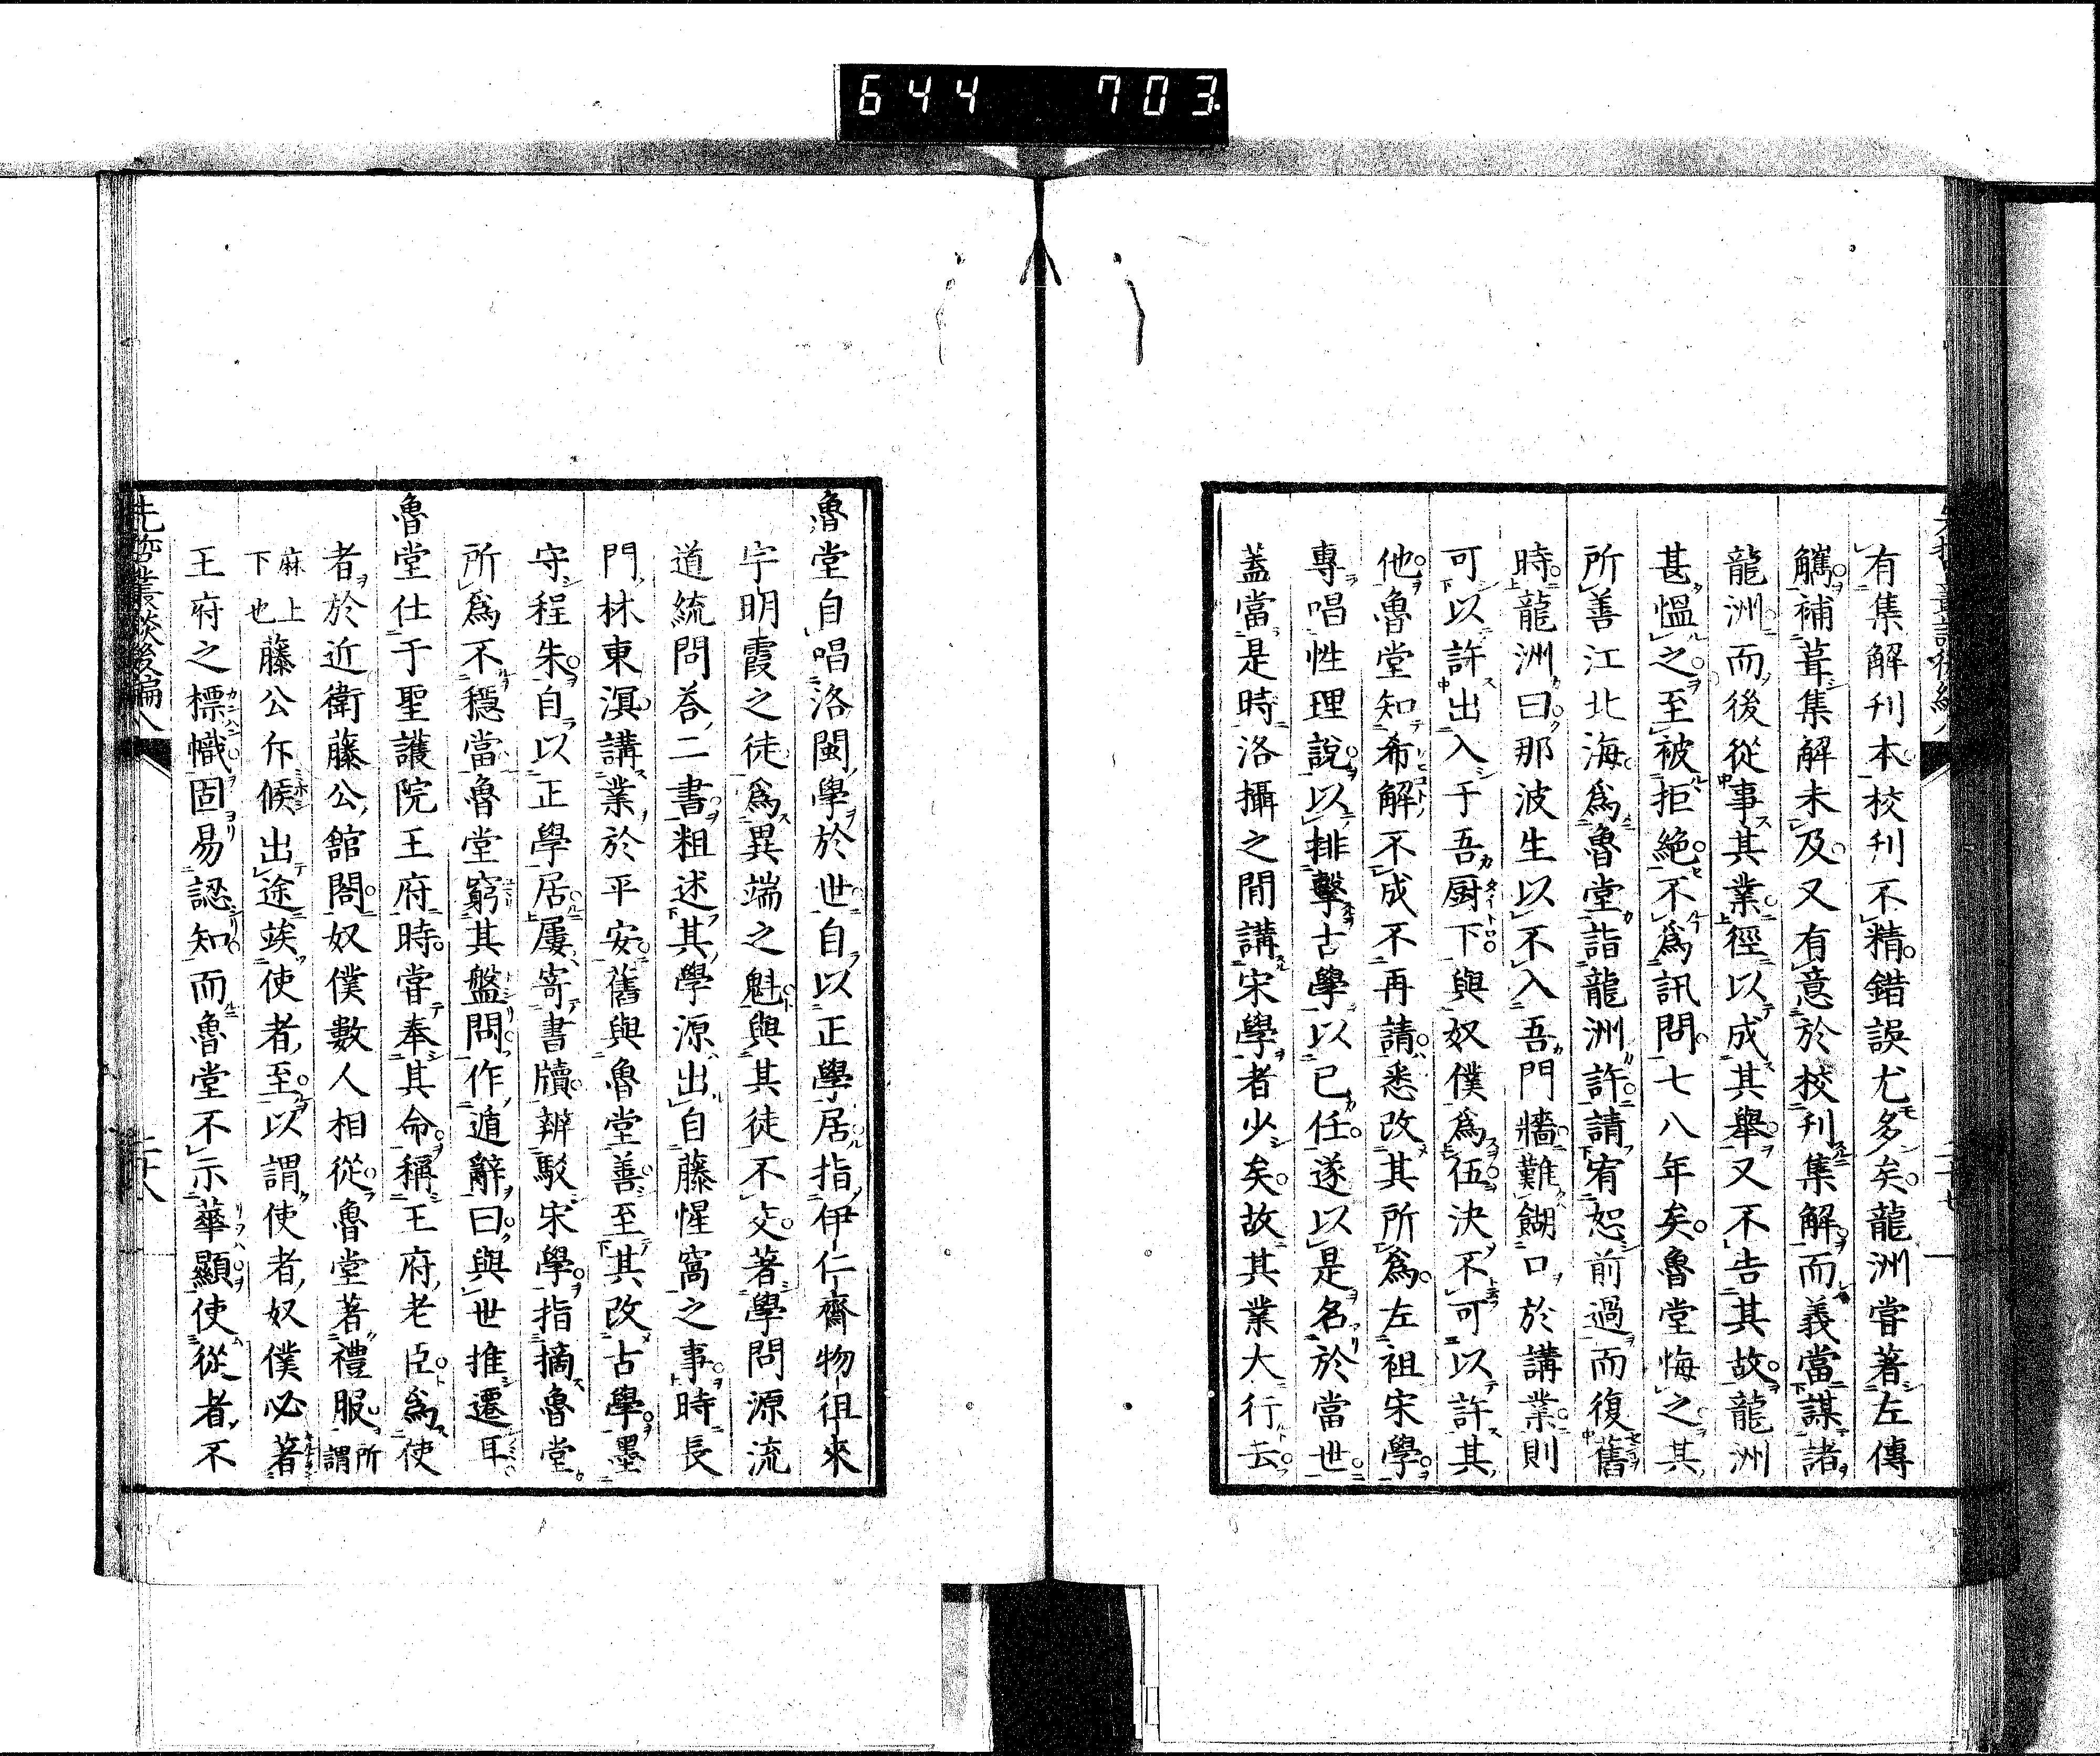 644 703
有集解刊本校刊不精錯誤尤多矣龍洲嘗著左傳
觿補葺集解未及又有意於校刊集解而義當謀諸
龍洲而後從事其業徑以成其舉又不告其故龍洲
甚慍之至被拒絶不爲訊問七八年矣魯堂悔之其
所善江北海爲魯堂詣龍洲許請宥恕前過而復舊
時龍洲曰那波生以不入吾門牆難餬口於講業則
可以許出入于吾厨下與奴僕爲伍決不可以許其
他魯堂知希解不成不再請悉改其所爲左祖宋學
專唱性理說以排擊古學以已任遂以是名於當世
蓋當是時洛攝之間講宋學者少矣故其業大行云
魯堂自唱洛閩學於世自以正學居指伊仁齋物徂來
宇明霞之徒爲異端之魁與其徒不交著學問源流
道統問荅二書粗述其學源出自藤惺窩之事時長
門林東溟講業於平安舊與魯堂善至其改古學墨
守程朱自以正學居屢寄書牘辨駁宋學指摘魯堂
所爲不穩當魯堂窮其盤問作遁辭曰與世推遷耳
魯堂仕于聖護院王府時嘗奉其命稱王府老臣爲使
者於近衛藤公館閤奴僕數人相從魯堂著禮服所謂
麻上下也藤公斥候出途竢使者至以謂使者奴僕必著
王府之標幟固易認知而魯堂不示華顯使從者不
先哲叢談後編八